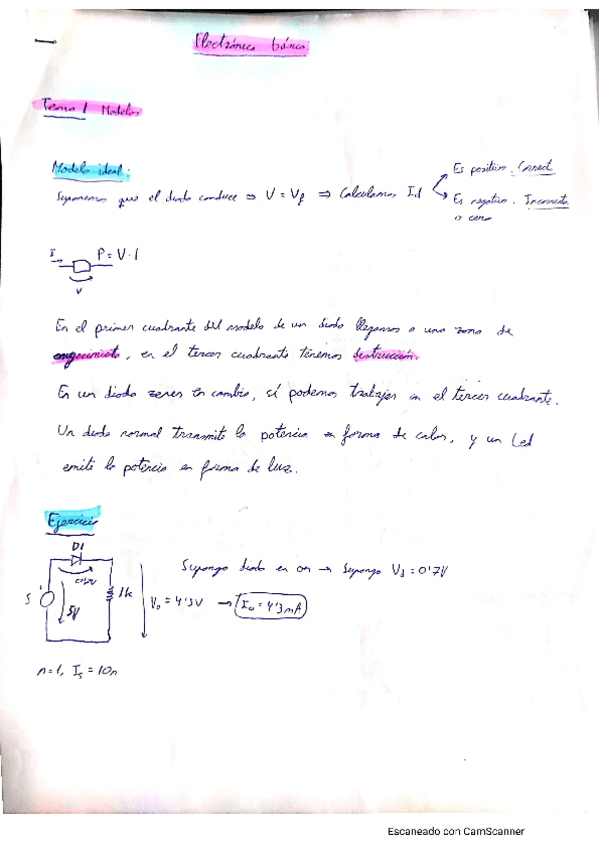 Electrónica básica
Tema 1 Modelos
Modelo ideal.
Es positivo. Correct.
Suponemos que el diodo conduce ⇒ V = Vf ⇒ Calculamos Id
Es negativo. Incorrecto
o cero
I P = V · I
V
En el primer cuadrante del modelo de un diodo llegamos a una zona de
, en el tercer cuadrante tenemos destrucción.
En un diodo zener en cambio, sí podemos trabajar en el tercer cuadrante.
Un diodo normal transmite la potencia en forma de calor, y un Led
emite la potencia en forma de luz.
Ejercicio
D1
Supongo diodo en on → Supongo Vd = 0'7V
5 5V 1k V₀ = 4'3V → I₀ = 4'3mA
n=1, Is = 10n
Escaneado con CamScanner